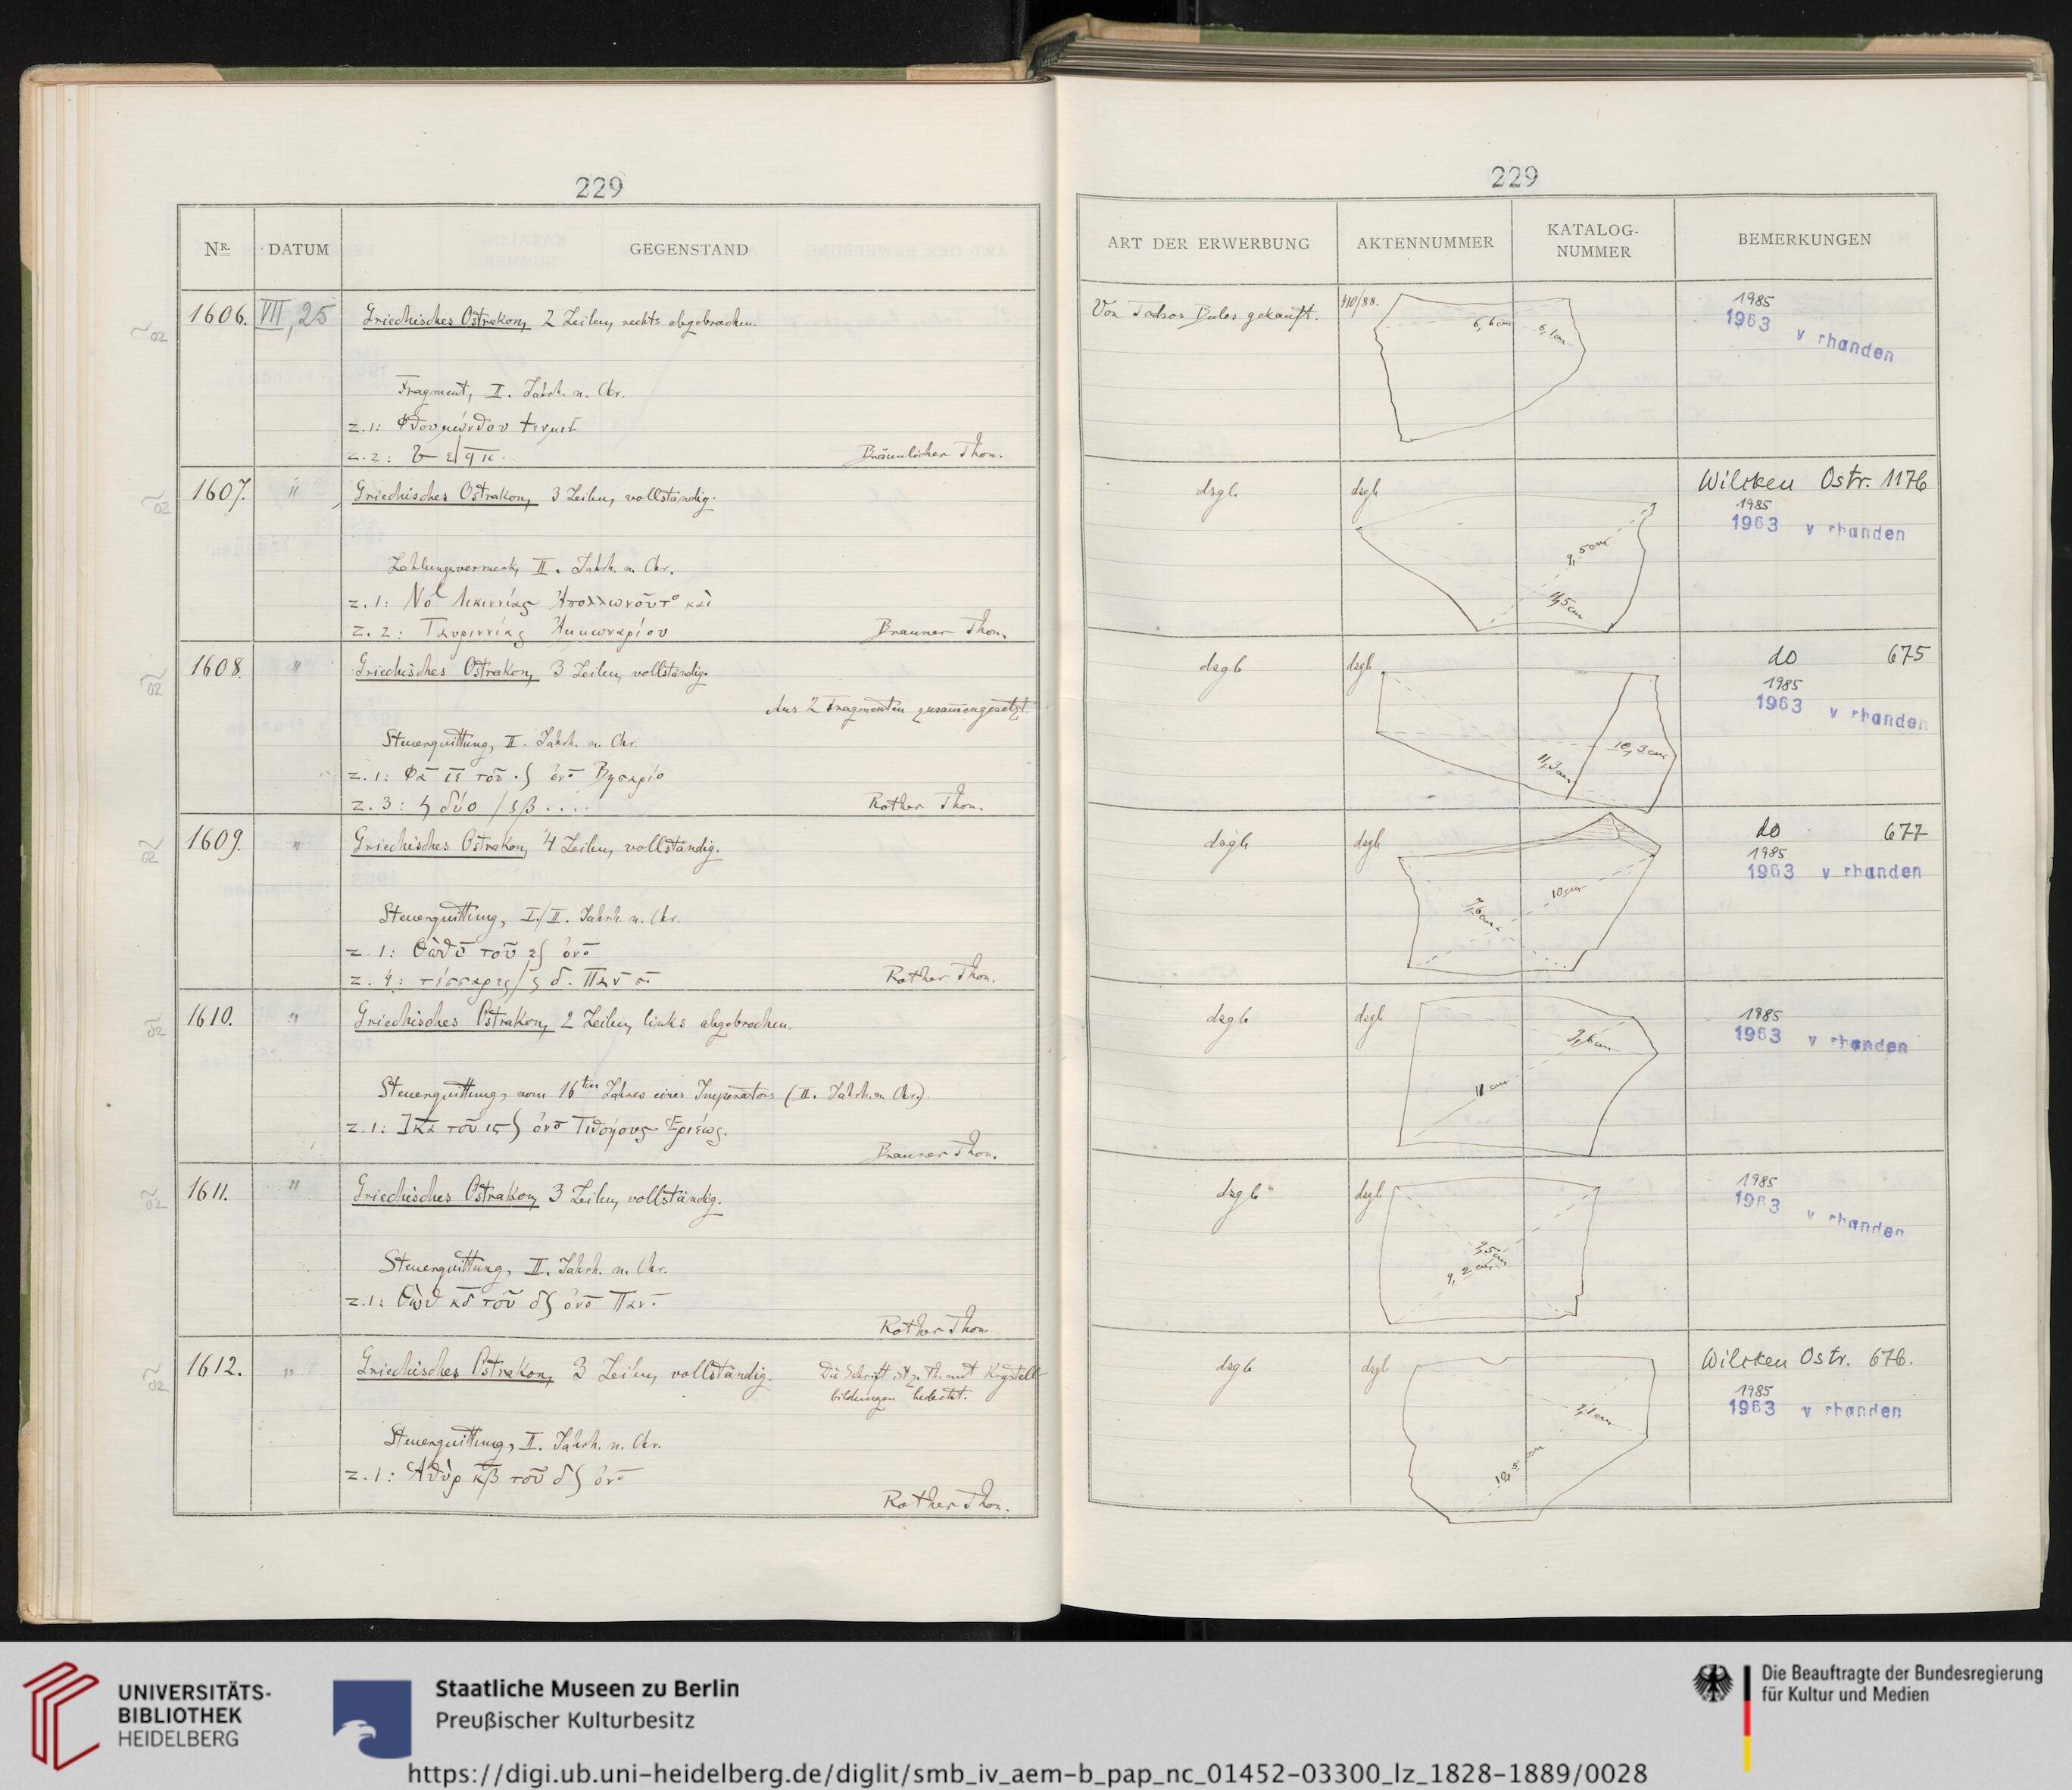 229
Nr. DATUM GEGENSTAND
1606. VII, 25 Griechisches Ostrakon, 2 Zeilen, rechts abgebrochen.
Fragment, II. Jahrh. n. Chr.
z. 1:
z. 2:
Bräunlicher Thon.
1607. " Griechisches Ostrakon, 3 Zeilen, vollständig.
Zahlungsvermerk, II. Jahrh. n. Chr.
z. 1: Λικιννίας Ἀπολλωνοῦτο καὶ
z. 2: Ταυριννίας Ἀμμωναρίου
Brauner Thon.
1608. " Griechisches Ostrakon, 3 Zeilen, vollständig.
Aus 2 Fragmenten zusammengesetzt.
Steuerquittung, II. Jahrh. n. Chr.
z. 1: τοῦ
z. 3: δύο
Rother Thon.
1609. " Griechisches Ostrakon, 4 Zeilen, vollständig.
Steuerquittung, I./II. Jahrh. n. Chr.
z. 1: τοῦ
z. 4: τέσσαρες
Rother Thon.
1610. " Griechisches Ostrakon, 2 Zeilen, links abgebrochen.
Steuerquittung, vom 16ten Jahres eines Imperators (II. Jahrh. n. Chr.)
z. 1: τοῦ ις
Brauner Thon.
1611. " Griechisches Ostrakon, 3 Zeilen, vollständig.
Steuerquittung, II. Jahrh. n. Chr.
z. 1: Θὼθ κδ τοῦ δ
Rother Thon
1612. " Griechisches Ostrakon, 3 Zeilen, vollständig. Die Schrift ist z. Th. mit Krystall-
bildungen bedeckt.
Steuerquittung, II. Jahrh. n. Chr.
z. 1: Ἁθὺρ κβ τοῦ δ
Rother Thon.
229
ART DER ERWERBUNG AKTENNUMMER KATALOG-NUMMER BEMERKUNGEN
Von Todros Bulos gekauft. 410/88. 6,6 cm 6,1 cm 1985
1963 v rhanden
dsgl. dsgl Wilcken Ostr. 1176
1985
1963 v rhanden
9,5 cm
11,5 cm
dsgl dsgl do 675
1985
1963 v rhanden
11,3 cm 10,3 cm
dsgl dsgl do 677
1985
1963 v rhanden
7,6 cm 10 cm
dsgl dsgl 1985
1963 v rhanden
11 cm
dsgl dsgl 1985
1963 v rhanden
9,2 cm
dsgl dsgl Wilcken Ostr. 676.
1985
1963 v rhanden
10,5 cm
UNIVERSITÄTS-
BIBLIOTHEK
HEIDELBERG
Staatliche Museen zu Berlin
Preußischer Kulturbesitz
Die Beauftragte der Bundesregierung
für Kultur und Medien
https://digi.ub.uni-heidelberg.de/diglit/smb_iv_aem-b_pap_nc_01452-03300_lz_1828-1889/0028